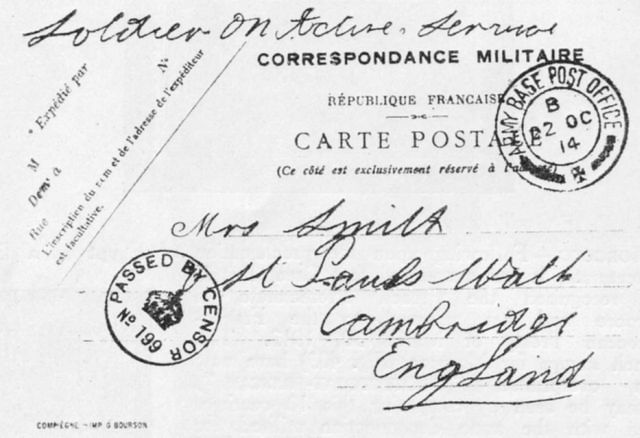 Soldier On Active. Service
CORRESPONDANCE MILITAIRE
RÉPUBLIQUE FRANCAISE
CARTE POSTALE
(Ce côté est exclusivement réservé à
ARMY BASE POST OFFICE
B
22 OC
14
* Expédié par
No
M
Demt à
Rue
L'inscription du nom et de l'adresse de l'expéditeur
est facultative.
Mrs Smith
St Pauls Walk
Cambridge
England
PASSED BY CENSOR
No 199
COMPIÈGNE - IMP G BOURSON